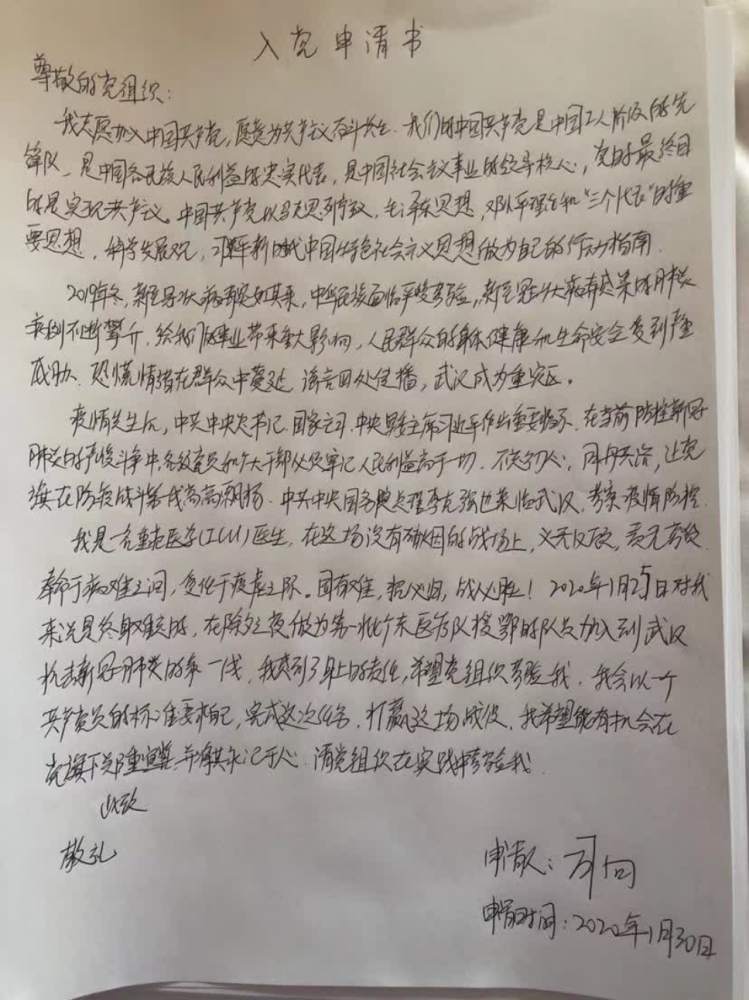 入党申请书
尊敬的党组织:
我志愿加入中国共产党,愿意为共产主义奋斗终生.我们的中国共产党是中国工人阶级的先
锋队,是中国各民族人民利益的忠实代表,是中国社会主义事业的领导核心,党的最终目
的是实现共产主义.中国共产党以马克思列宁主义,毛泽东思想,邓小平理论和"三个代表"的重
要思想,科学发展观,习近平新时代中国特色社会主义思想做为自己的行动指南.
2019年冬,新冠状病毒忽如其来,中华民族面临严峻考验,新冠状病毒感染的肺炎
病例不断攀升,给我们的事业带来重大影响,人民群众的身体健康和生命安全受到严
威胁.恐慌情绪在群众中蔓延,谣言四处传播,武汉成为重灾区。
疫情发生后,中共中央总书记.国家主席.中央军委主席习近平作出重要指示.在当前防控新冠
肺炎的严峻斗争中,各级党员和广大干部必须牢记人民利益高于一切.不忘初心,同舟共济,让党
旗在防疫战斗第一线高高飘扬.中共中央国务院总理李克强也亲临武汉,考察疫情防控.
我是一名重症医学(ICU)医生,在这场没有硝烟的战场上,义无反顾,责无旁贷.
奉命于病难之间,受任于疫虐之际.国有难,招必回,战必胜!2020年1月25日对我
来说是终身难忘的,在除夕之夜做为第一批广东医疗队援鄂的队员加入到武汉
抗击新冠肺炎的第一线,我感到了身上的责任,希望党组织考验我.我会以一个
共产党员的标准要求自己,完成这次任务.打赢这场战役.我希望能有机会在
党旗下郑重宣誓,并将其永记于心.请党组织在实践中考验我.
此致
敬礼
申请人:
申请时间:2020年1月30日